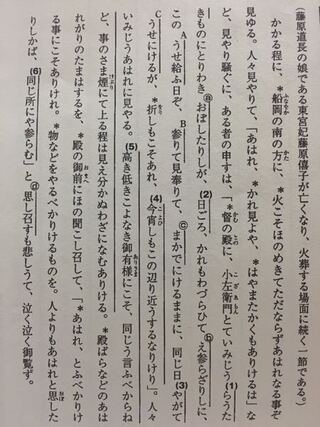 (藤原道長の娘である東宮妃藤原嬉子が亡くなり、火葬する場面に続く一節である。)
かかる程に、*船岡の南の方に、*火こそほのめきてただならずあはれなる事ぞ
見ゆる。人々見やりて、「あはれ、*かれ見よや、*はやまたかくもありけるは」な
ど、見やり騒ぐに、ある者の申すは、「*督の殿に、小左衛門とていみじう(1)らうた
きものにとりわきⓐおぼしたりしが、(2)日ごろ、かれもわづらひてⓑえ参らざりしに、
この Aうせ給ふ日ぞ、B参りて見奉りて、ⓒまかでにけるままに、同じ日(3)やがて
Cうせにけるが、*折しもこそあれ、(4)今宵しもこの辺り近うするなりけり」。人々
いみじうあはれに見やる。(5)高き低きこよなき御有様にこそ、同じう言ふべからね
ど、事のさま煙にて上る程は見え分かぬわざになむありける。*殿ばらなどのあは
れがりのたまはするを、*殿の御前にほの聞こし召して、「*あはれ、とふべかりけ
る事にこそありけれ。*物などをやるべかりけるものを。人よりもあはれと思した
りしかば、(6)同じ所にや参らむ」とⓓ思し召すも悲しうて、泣く泣く御覧ず。